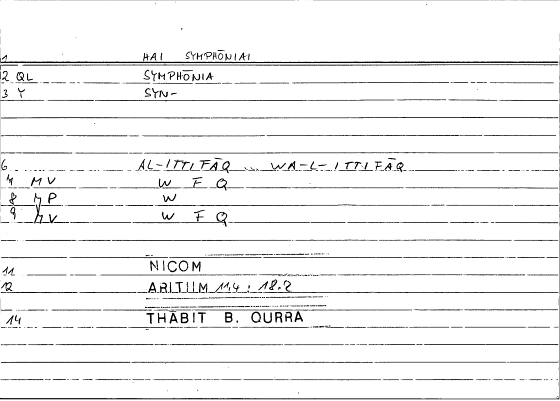 1 HAI SYMPHŌNIAI
2 QL SYMPHŌNIA
3 Y SYN-
6 AL-ITTIFĀQ ... WA-L-ITTIFĀQ
7 MV W F Q
8 MP W
9 MV W F Q
11 NICOM
12 ARITIIM 11,4 : 18.2
14 THĀBIT B. QURRA